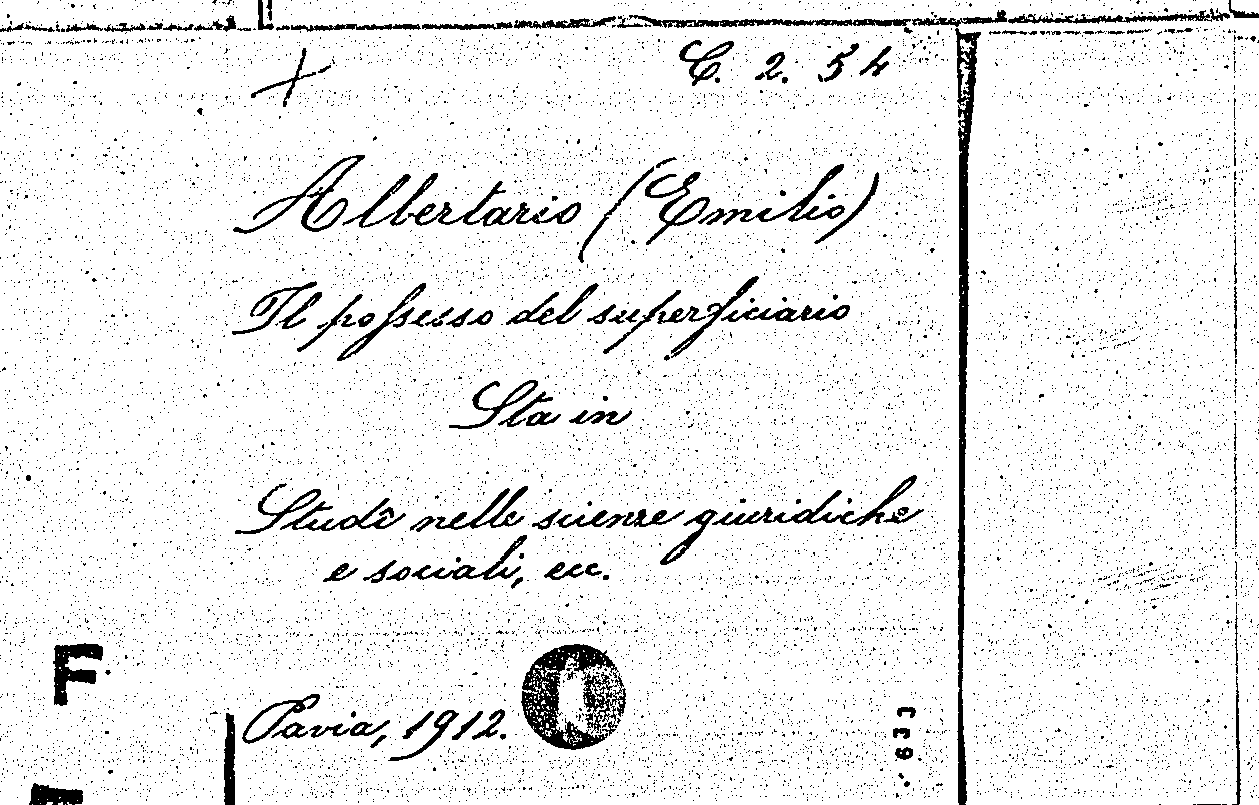 C. 2. 54
Albertario (Emilio)
Il possesso del superficiario
Sta in
Studî nelle scienze giuridiche
e sociali, ecc.
F
Pavia, 1912.
633